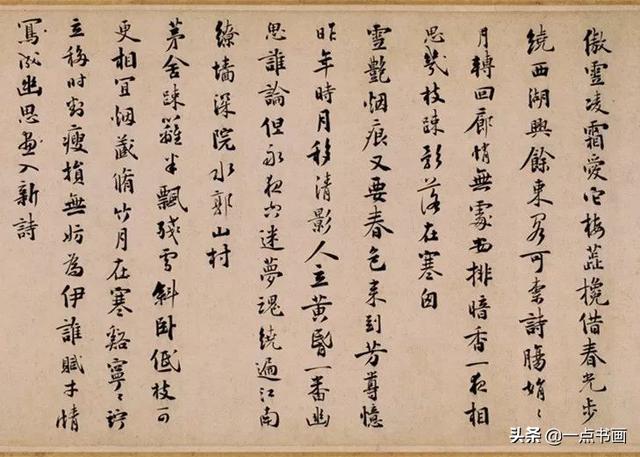 傲雪凌霜愛他梅蕊攙借春光步
繞西湖興餘東閣可柰詩腸娟〻
月轉回廊悄無處安排暗香一夜相
思幾枝疎影落在寒囱
雪艷烟痕又要春色來到芳尊憶
昨年時月移清影人立黃昏一番幽
思誰論但永夜空迷夢魂繞遍江南
繚墻深院水郭山村
茅舍疎籬半飄殘雪斜臥低枝可
更相宜烟藏脩竹月在寒谿寧〻竚
立移時判瘦損無妨為伊誰賦才情
寫成幽思畫入新詩
头条 @一点书画